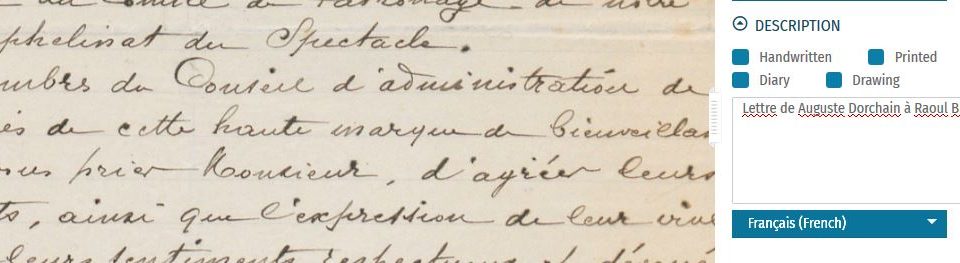 Comité de Patronage de notre
phelinat du Spectacle.
mbres du Conseil d'administration de
és de cette haute marque de bienveillan
ous prier Monsieur, d'agréer leurs
ts, ainsi que l'expression de leur vive
leurs sentiments respectueux et dévoué
DESCRIPTION
Handwritten
Printed
Diary
Drawing
Lettre de Auguste Dorchain à Raoul B
Français (French)